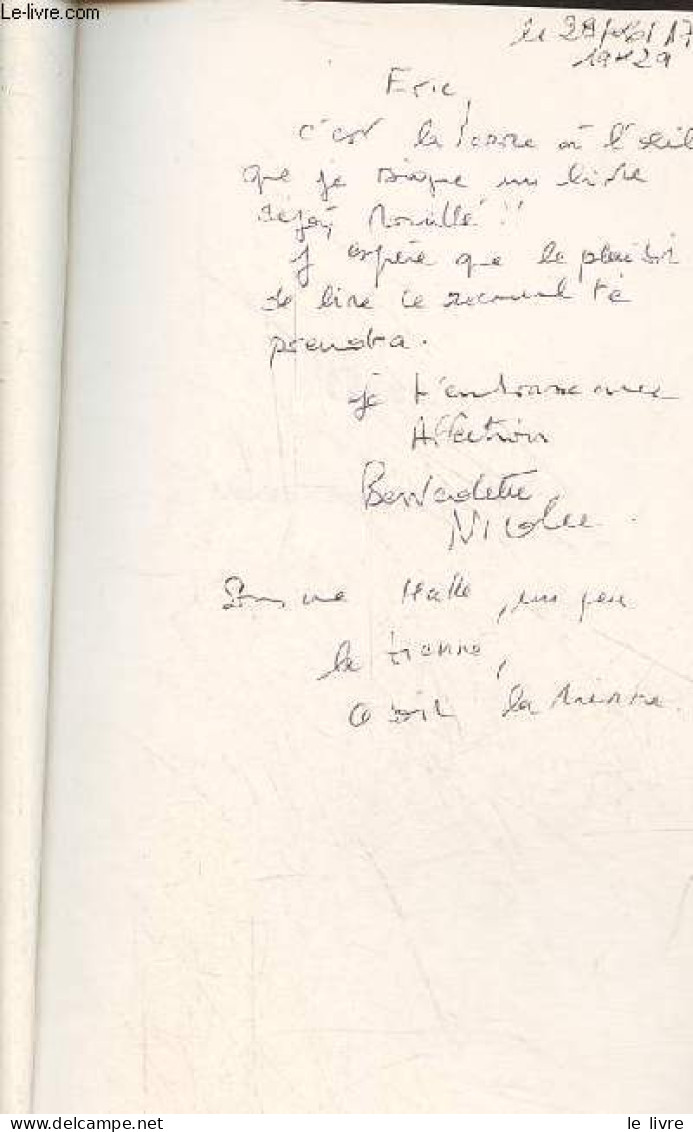 Le-livre.com
le 29
19h29
Eric,
c'est la larme à l'œil
que je signe un livre
déjà mouillé !!
j'espère que le plaisir
de lire ce recueil te
prendra.
je t'embrasse avec
Affection
Bernadette
Nicolee
un peu
la tienne,
la mienne.
www.delcampe.net
le livre